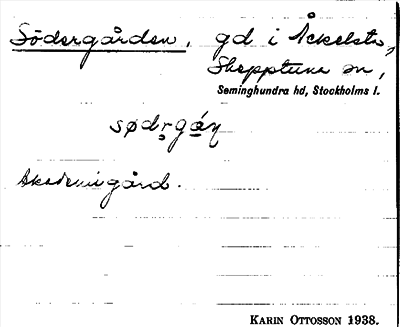 Södergården, gd. i Åckelsta,
Skepptuna sn,
Seminghundra hd, Stockholms l.
sødr̥gáṇ
Akademigård.
KARIN OTTOSSON 1938.